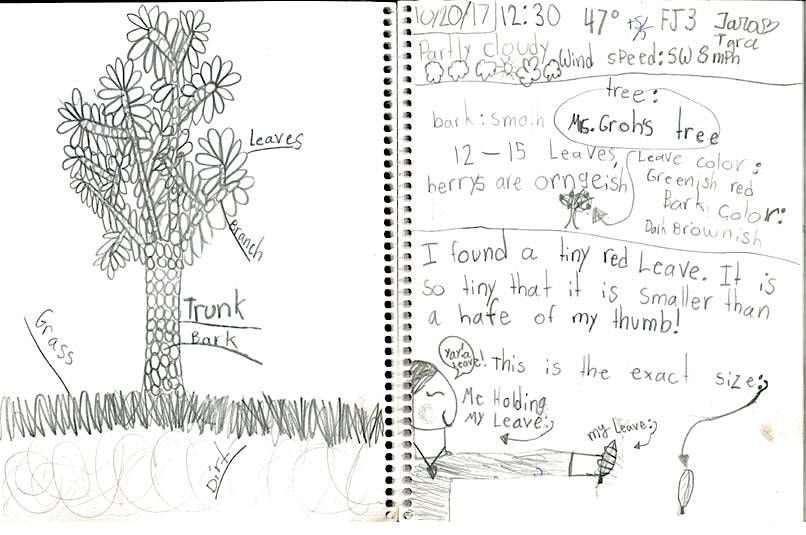 Leaves
Branch
Trunk
Bark
Grass
Dirt
10/20/17 12:30 47° FJ3
Tara
Partly cloudy Wind speed: SW 8 mph
tree:
bark: smoth Mrs. Groh's tree
12 — 15 Leaves,
berrys are orngeish
Leave color:
Greenish red
Bark Color:
Dark Brownish
I found a tiny red Leave. It is
so tiny that it is smaller than
a hafe of my thumb!
Yay! a
leave!
This is the exact size:
Me Holding
My Leave:
my Leave: